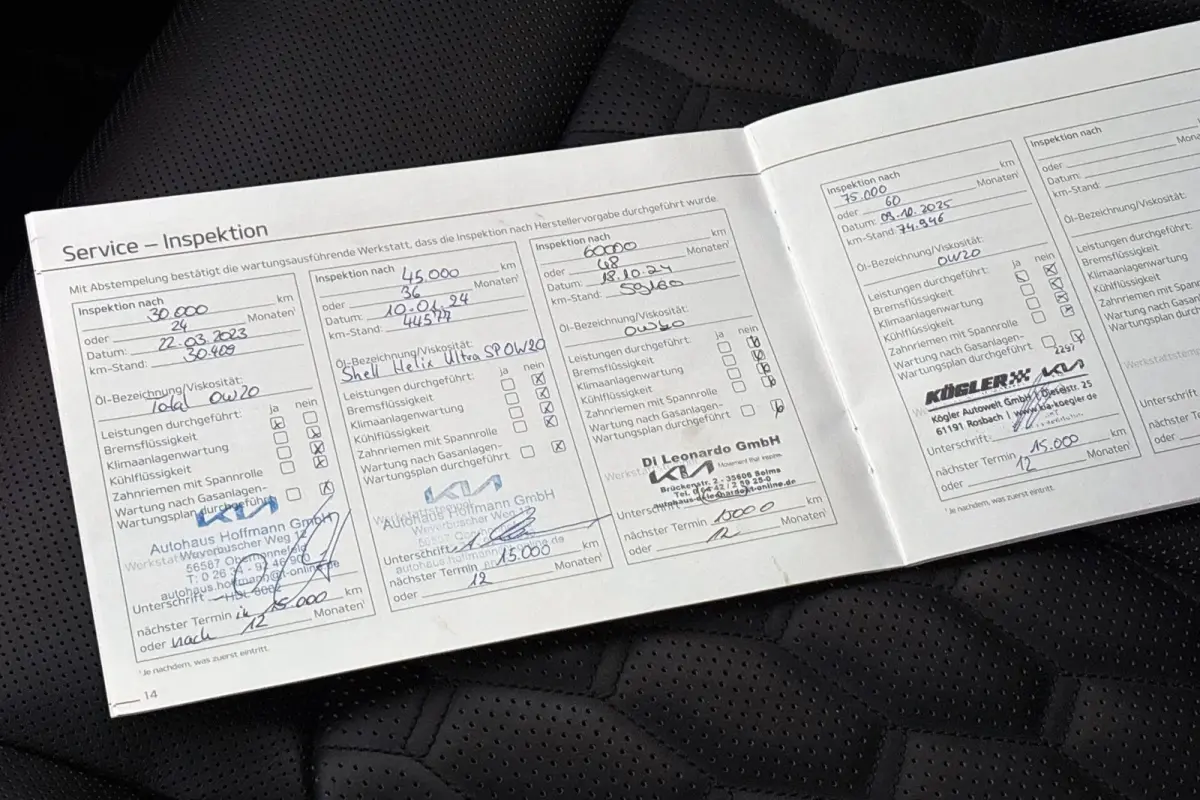 Service – Inspektion
Mit Abstempelung bestätigt die wartungsausführende Werkstatt, dass die Inspektion nach Herstellervorgabe durchgeführt wurde.
Inspektion nach
30.000 km
oder 24 Monaten¹
Datum: 22.03.2023
km-Stand: 30.409
Öl-Bezeichnung/Viskosität:
Total 0W20
Leistungen durchgeführt: ja nein
Bremsflüssigkeit
Klimaanlagenwartung
Kühlflüssigkeit
Zahnriemen mit Spannrolle
Wartung nach Gasanlagen-
Wartungsplan durchgeführt
KIA
Autohaus Hoffmann GmbH
Weyerbuscher Weg 12
56587 Oberhonnefeld
T: 0 26 34 - 92 46 900
autohaus.hoffmann@t-online.de
Unterschrift
nächster Termin in 15.000 km
oder nach 12 Monaten¹
¹Je nachdem, was zuerst eintritt.
14
Inspektion nach
45.000 km
oder 36 Monaten¹
Datum: 10.01.24
km-Stand: 44577
Öl-Bezeichnung/Viskosität:
Shell Helix Ultra SP 0W20
Leistungen durchgeführt: ja nein
Bremsflüssigkeit
Klimaanlagenwartung
Kühlflüssigkeit
Zahnriemen mit Spannrolle
Wartung nach Gasanlagen-
Wartungsplan durchgeführt
KIA
Autohaus Hoffmann GmbH
Weyerbuscher Weg 12
Unterschrift
nächster Termin 15.000 km
oder 12 Monaten¹
Inspektion nach
60000 km
oder 48 Monaten¹
Datum: 18.10.24
km-Stand: 59160
Öl-Bezeichnung/Viskosität:
Leistungen durchgeführt: ja nein
Bremsflüssigkeit
Klimaanlagenwartung
Kühlflüssigkeit
Zahnriemen mit Spannrolle
Wartung nach Gasanlagen-
Wartungsplan durchgeführt
Di Leonardo GmbH
KIA Movement that inspires
Brückenstr. 2 - 35606 Solms
Unterschrift
nächster Termin 15000 km
oder 12 Monaten¹
Inspektion nach
75.000 km
oder 60 Monaten¹
Datum: 09.10.2025
km-Stand: 74.946
Öl-Bezeichnung/Viskosität:
0W20
Leistungen durchgeführt: ja nein
Bremsflüssigkeit
Klimaanlagenwartung
Kühlflüssigkeit
Zahnriemen mit Spannrolle
Wartung nach Gasanlagen-
Wartungsplan durchgeführt
KÖGLER KIA
Kögler Autowelt GmbH | Dieselstr. 25
61191 Rosbach | www.kia-koegler.de
Unterschrift:
nächster Termin 15.000 km
oder 12 Monaten¹
¹Je nachdem, was zuerst eintritt.
Inspektion nach
oder
Datum:
km-Stand:
Öl-Bezeichnung/Viskosität:
Leistungen durchgeführt:
Bremsflüssigkeit
Klimaanlagenwartung
Kühlflüssigkeit
Zahnriemen mit
Wartung nach
Wartungsplan
Unterschrift
nächster
oder